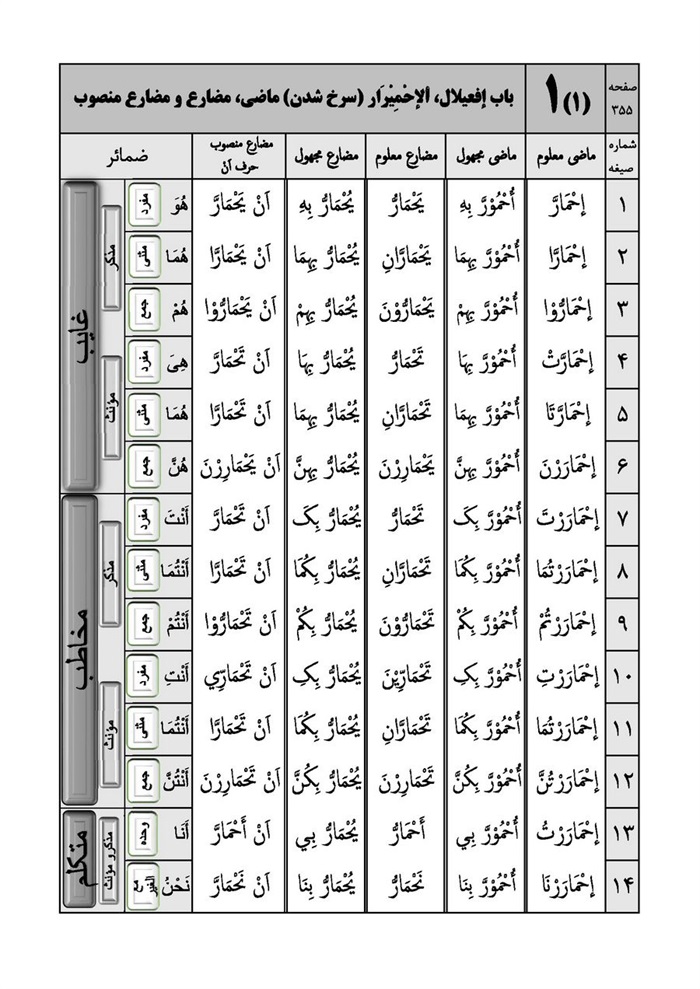 صفحه ۳۵۵ ۱ (۱) باب إفعيلال، اَلإحْمِيْرَار (سرخ شدن) ماضی، مضارع و مضارع منصوب
شماره صیغه ماضی معلوم ماضی مجهول مضارع معلوم مضارع مجهول مضارع منصوب حرف اَنْ ضمائر
۱ إحْمَارَّ أُحْمُوْرَّ بِهِ يَحْمَارُّ يُحْمَارُّ بِهِ اَنْ يَحْمَارَّ هُوَ مفرد مذکر غایب
۲ إحْمَارَّا أُحْمُوْرَّ بِهِمَا يَحْمَارَّانِ يُحْمَارُّ بِهِمَا اَنْ يَحْمَارَّا هُمَا مثنی
۳ إحْمَارُّوْا أُحْمُوْرَّ بِهِمْ يَحْمَارُّوْنَ يُحْمَارُّ بِهِمْ اَنْ يَحْمَارُّوْا هُمْ جمع
۴ إحْمَارَّتْ أُحْمُوْرَّ بِهَا تَحْمَارُّ يُحْمَارُّ بِهَا اَنْ تَحْمَارَّ هِیَ مفرد مؤنث
۵ إحْمَارَّتَا أُحْمُوْرَّ بِهِمَا تَحْمَارَّانِ يُحْمَارُّ بِهِمَا اَنْ تَحْمَارَّا هُمَا مثنی
۶ إحْمَارَرْنَ أُحْمُوْرَّ بِهِنَّ يَحْمَارِرْنَ يُحْمَارُّ بِهِنَّ اَنْ يَحْمَارِرْنَ هُنَّ جمع
۷ إحْمَارَرْتَ أُحْمُوْرَّ بِکَ تَحْمَارُّ يُحْمَارُّ بِکَ اَنْ تَحْمَارَّ أَنْتَ مفرد مذکر مخاطب
۸ إحْمَارَرْتُمَا أُحْمُوْرَّ بِکُمَا تَحْمَارَّانِ يُحْمَارُّ بِکُمَا اَنْ تَحْمَارَّا أَنْتُمَا مثنی
۹ إحْمَارَرْتُمْ أُحْمُوْرَّ بِکُمْ تَحْمَارُّوْنَ يُحْمَارُّ بِکُمْ اَنْ تَحْمَارُّوْا أَنْتُمْ جمع
۱۰ إحْمَارَرْتِ أُحْمُوْرَّ بِکِ تَحْمَارِّيْنَ يُحْمَارُّ بِکِ اَنْ تَحْمَارِّي أَنْتِ مفرد مؤنث
۱۱ إحْمَارَرْتُمَا أُحْمُوْرَّ بِکُمَا تَحْمَارَّانِ يُحْمَارُّ بِکُمَا اَنْ تَحْمَارَّا أَنْتُمَا مثنی
۱۲ إحْمَارَرْتُنَّ أُحْمُوْرَّ بِکُنَّ تَحْمَارِرْنَ يُحْمَارُّ بِکُنَّ اَنْ تَحْمَارِرْنَ أَنْتُنَّ جمع
۱۳ إحْمَارَرْتُ أُحْمُوْرَّ بِي أَحْمَارُّ يُحْمَارُّ بِي اَنْ أَحْمَارَّ أَنَا وحده مذکر و مؤنث متکلم
۱۴ إحْمَارَرْنَا أُحْمُوْرَّ بِنَا نَحْمَارُّ يُحْمَارُّ بِنَا اَنْ نَحْمَارَّ نَحْنُ مع الغیر